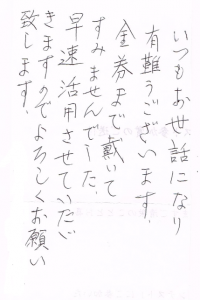 いつもお世話になり
有難うございます.
金券まで戴いて
すみませんでした.
早速活用させていただ
きますのでよろしくお願い
致します.